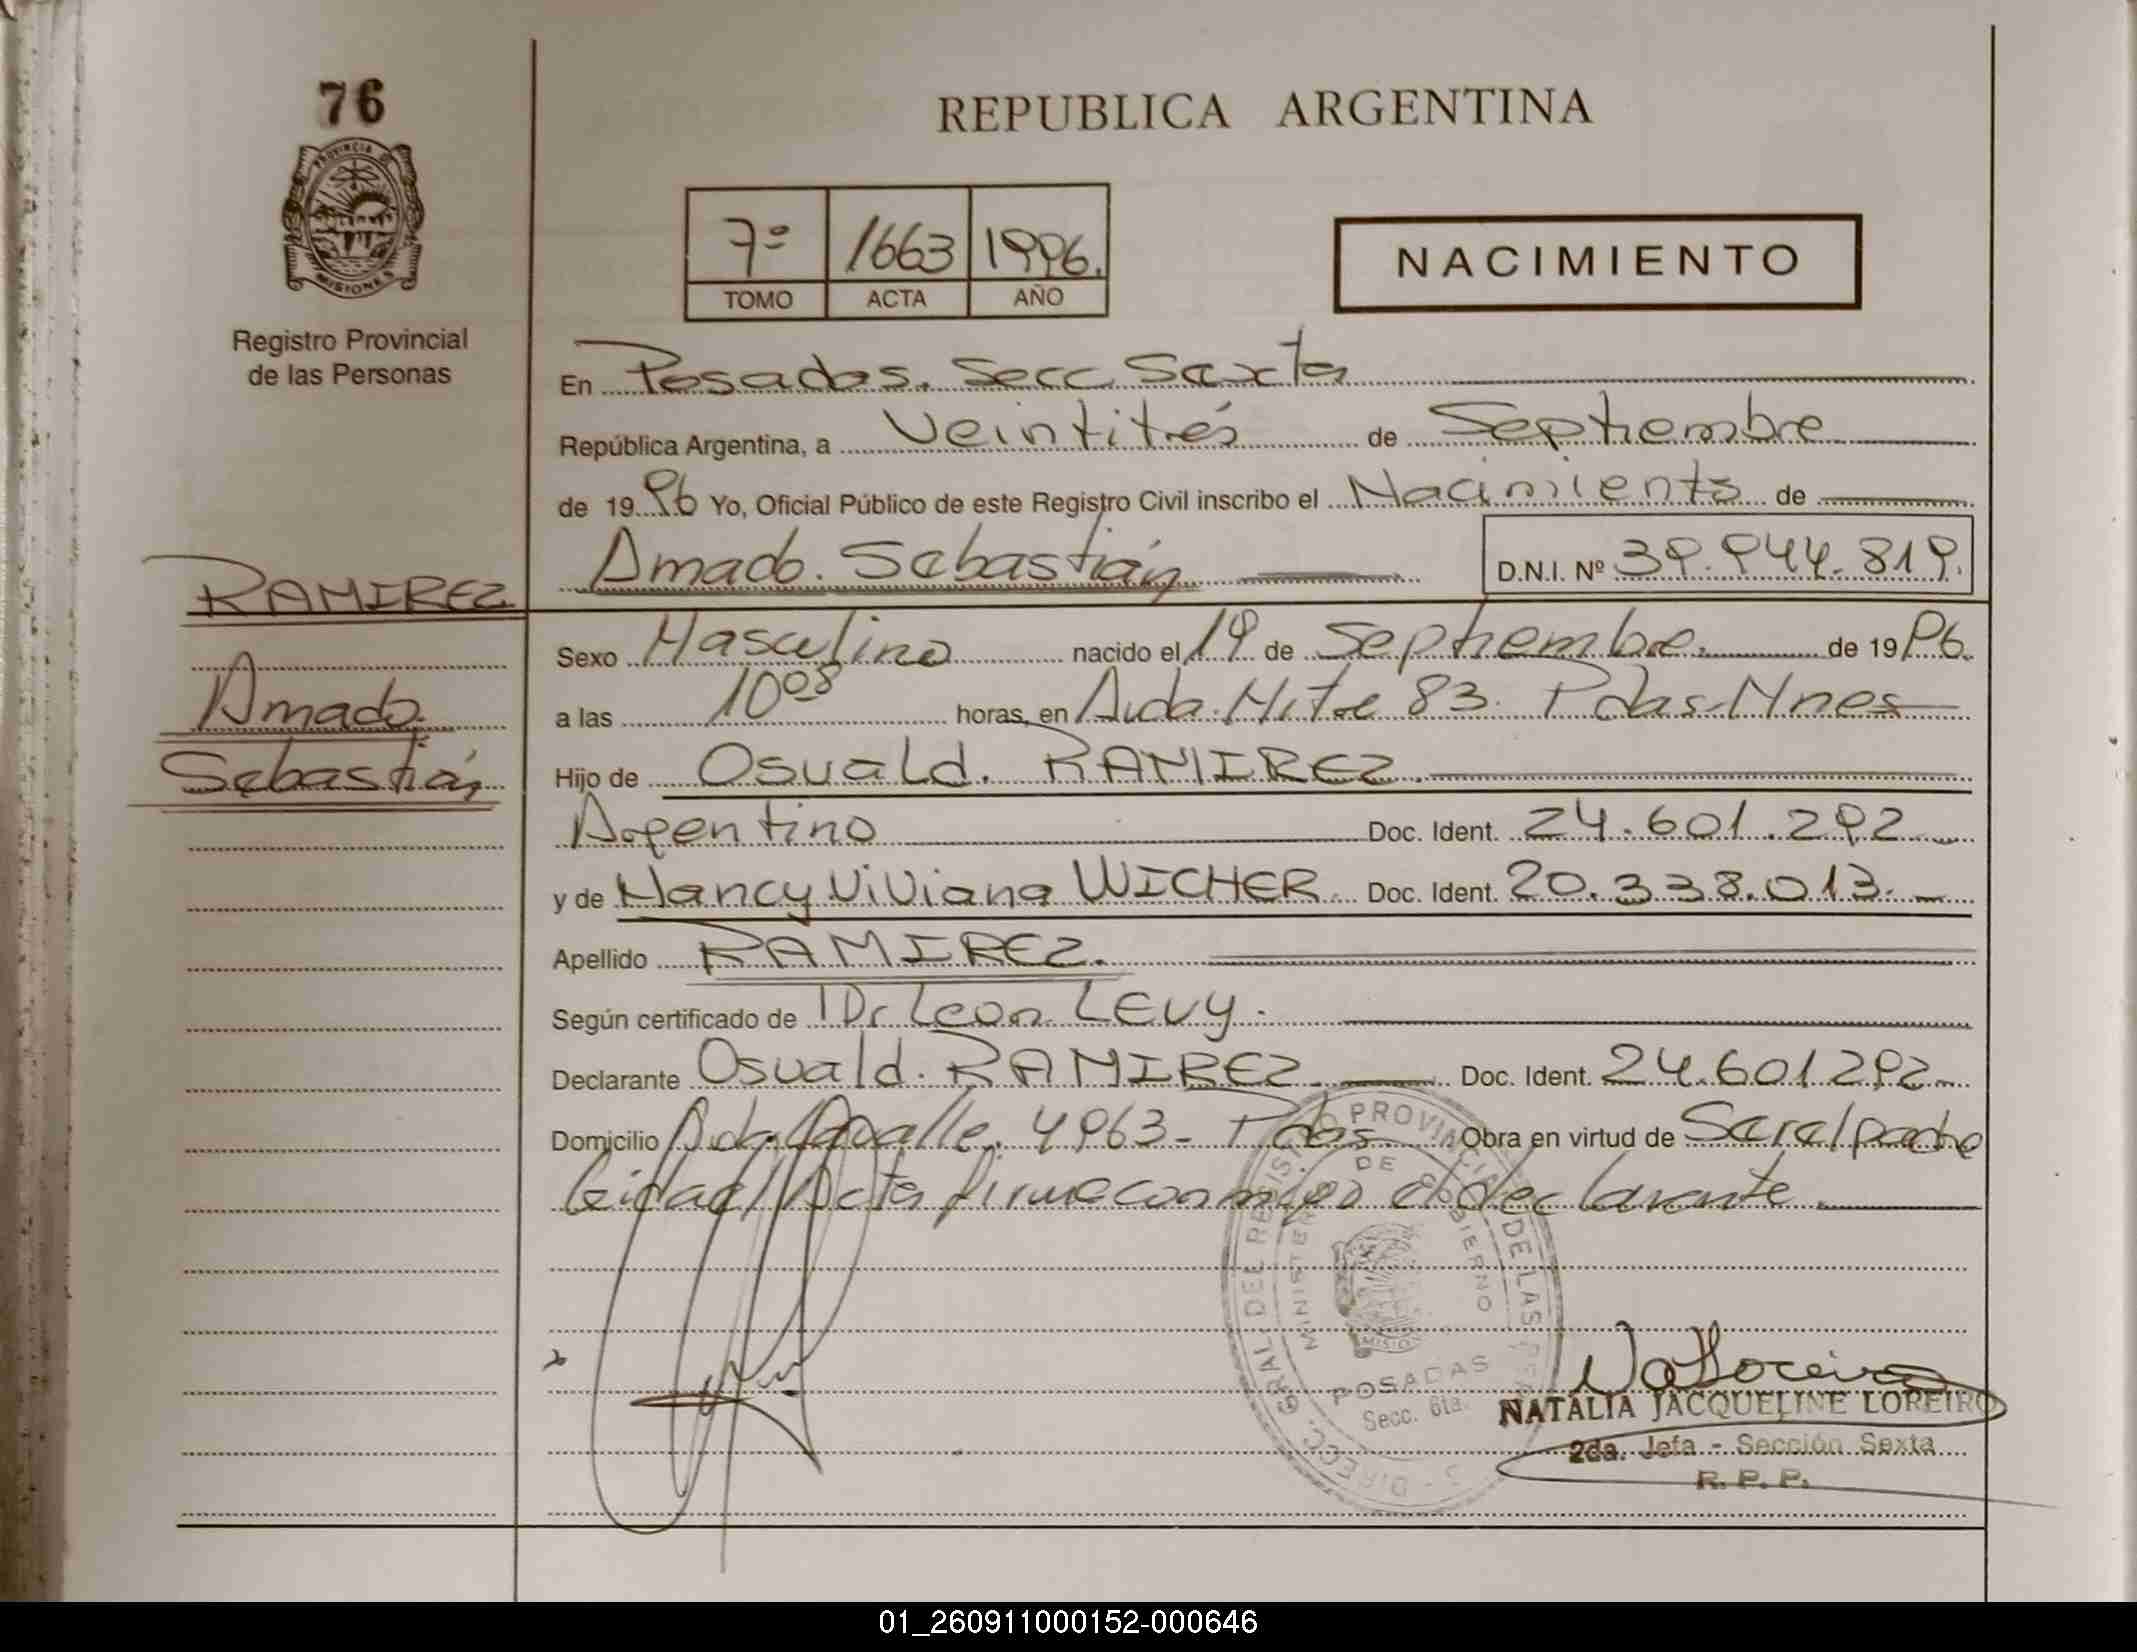 76
PROVINCIA DE
MISIONES
Registro Provincial
de las Personas
RAMIREZ
Amado
Sebastián
REPUBLICA ARGENTINA
7º 1663 1996.
TOMO ACTA AÑO
NACIMIENTO
En Posadas. Secc. Sexta
República Argentina, a Veintitrés de Septiembre
de 1996 Yo, Oficial Público de este Registro Civil inscribo el Nacimiento de
Amado. Sebastián D.N.I. Nº 39.944.819.
Sexo Masculino nacido el 19 de Septiembre. de 1996.
a las 10⁰⁸ horas, en Avda. Mitre 83. Pdas-Mnes
Hijo de Osvald. RAMIREZ.
Argentino Doc. Ident. 24.601.292
y de Nancy Viviana WICHER. Doc. Ident. 20.338.013.
Apellido RAMIREZ.
Según certificado de Dr Leon LEVY.
Declarante Osvald. RAMIREZ. Doc. Ident. 24.601292
Domicilio Avda. 4963- Pdas. Obra en virtud de
Leida el Acta firma conmigo el declarante.
DIREC. GRAL. DEL REGISTRO PROVINCIAL DE LAS PERS
MINISTERIO DE GOBIERNO
MISIONES
POSADAS
Secc. 6ta.
NATALIA JACQUELINE LOREIRO
2da. Jefa - Sección Sexta
R. P. P.
01_260911000152-000646